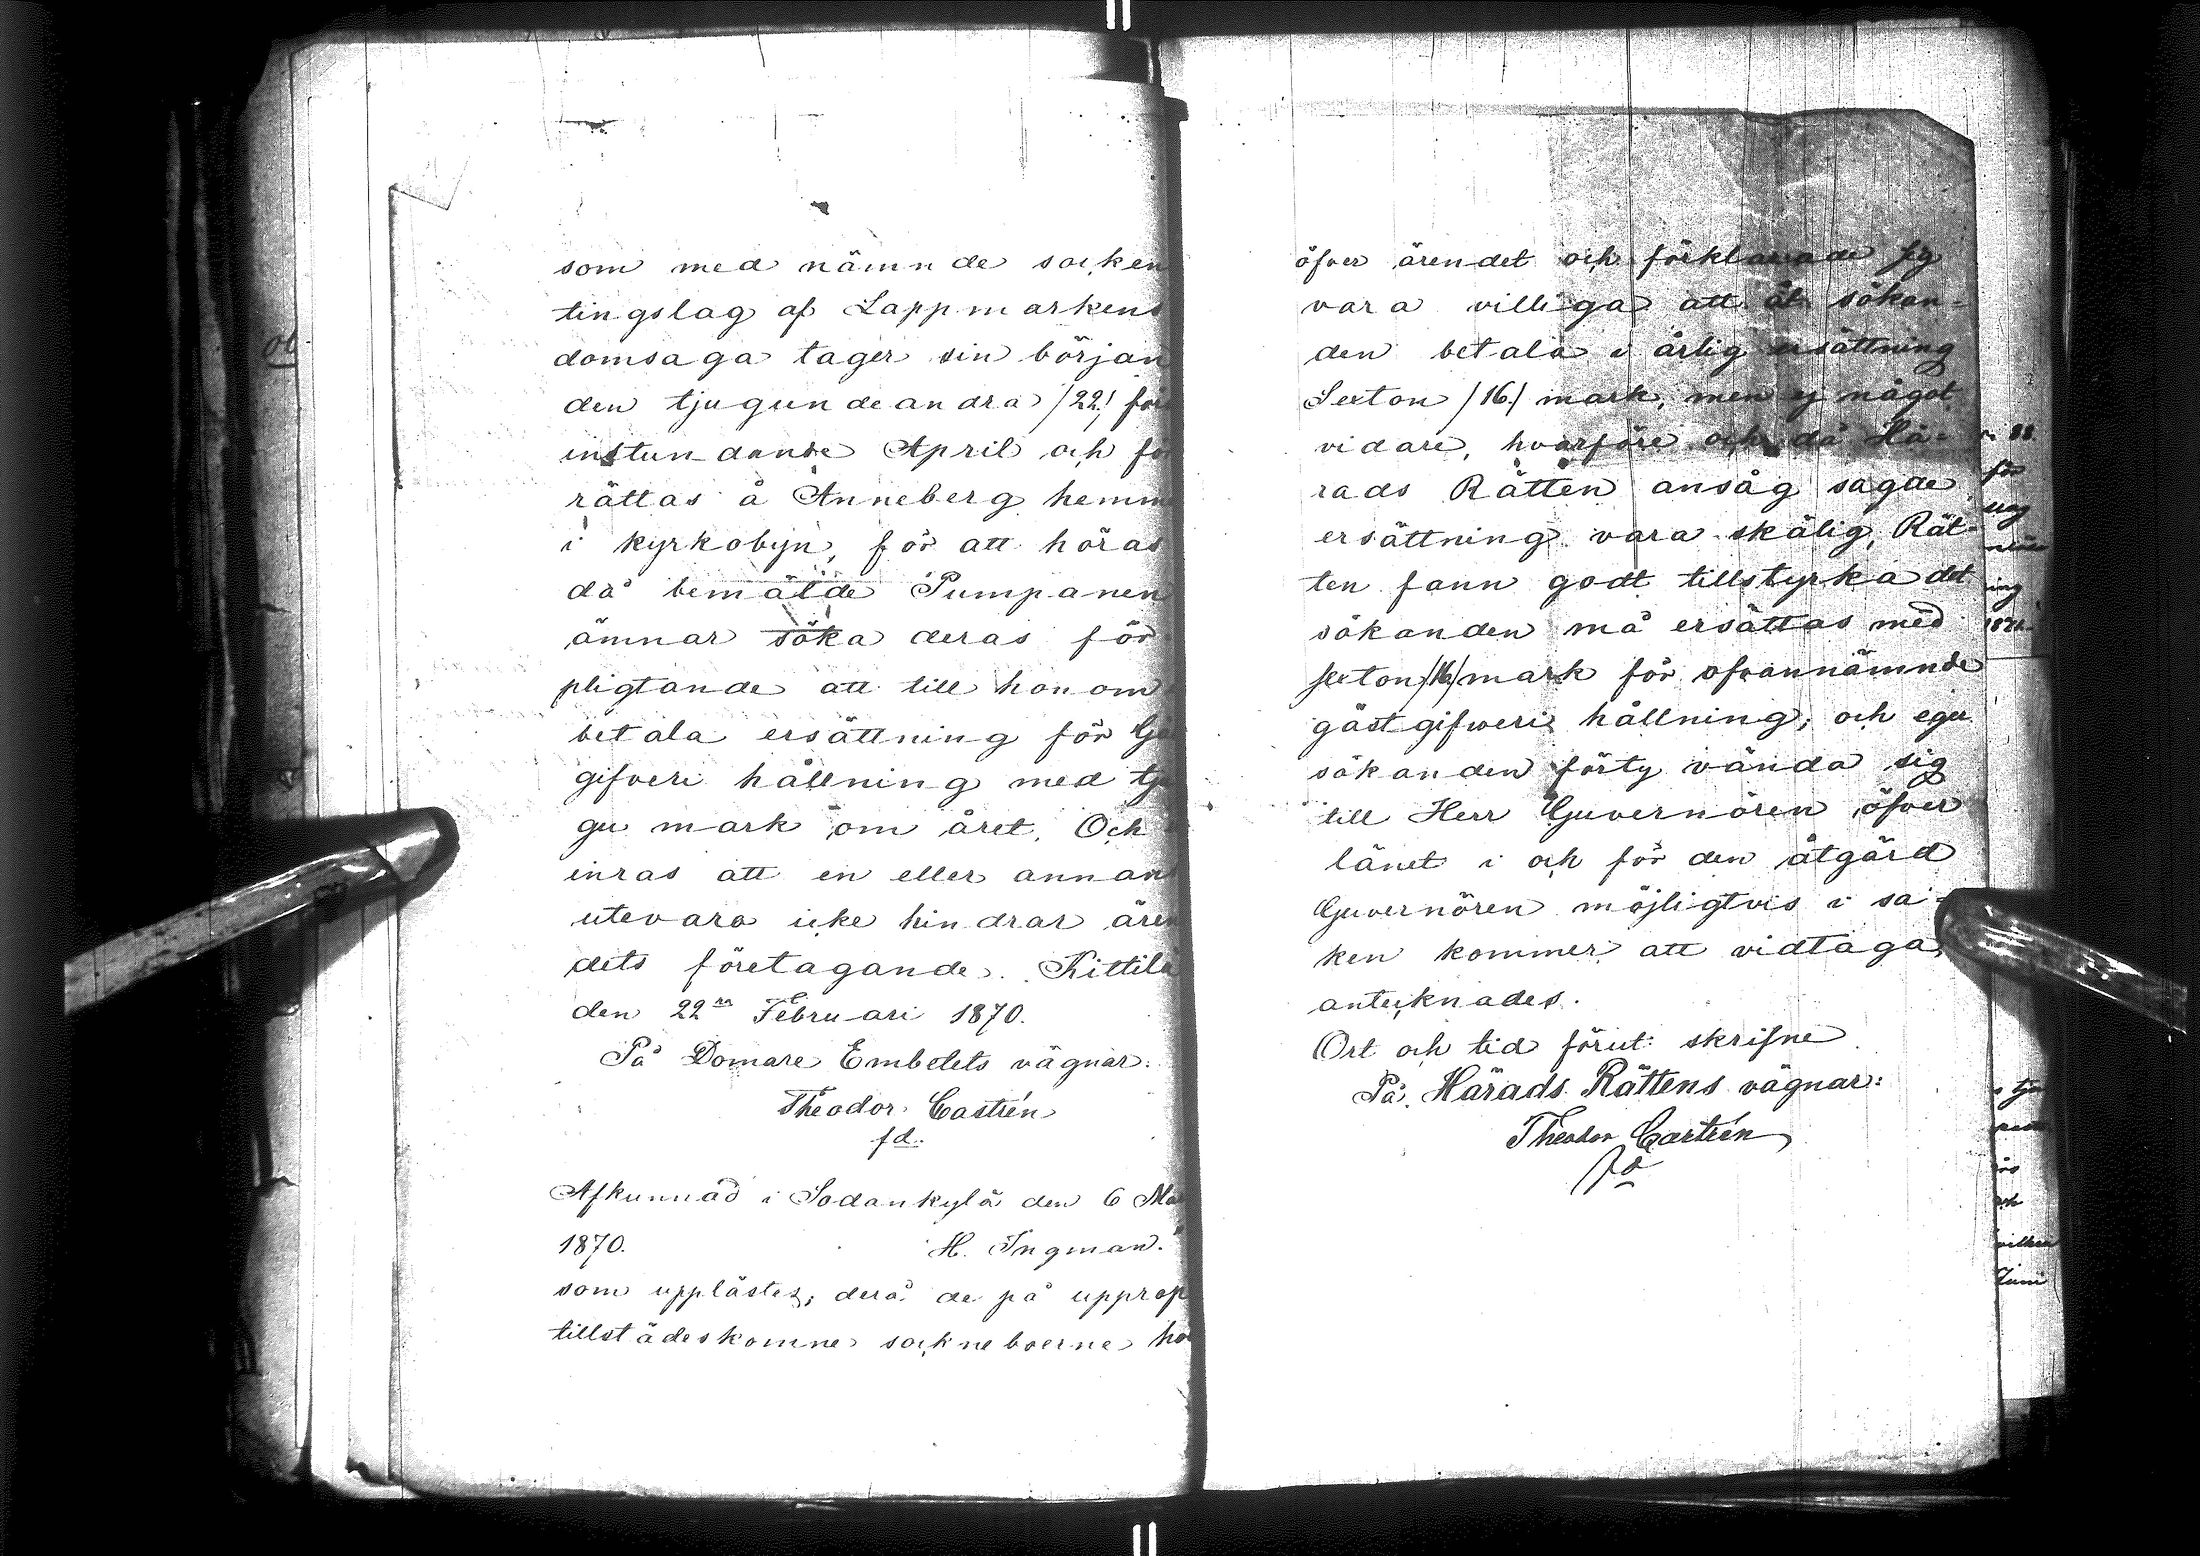 som med nämnde socken
tingslag af Lappmarkens
domsaga tager sin början
den tjugundeandra /22/ för
instundande April och för
rättas å Anneberg hemm
i kyrkobyn, för att höras
då bemälde Pumpanen
ämnar söka deras för
pligtande att till honom
betala ersättning för Gä
gifveri hållning med tju
gu mark om året. Och
inras att en eller annan
utevaro icke hindrar ären
dets företagande. Kittilä
den 22dra Februari 1870.
På Domare Embetets vägnar:
Theodor Castrén
fd.
Afkunnad i Sodankylä den 6 Mar
1870. H. Ingman."
som upplästes; derå de på upprop
tillstädeskomne sockneboerne hö
öfver ärendet och förklarade sig
vara villiga att åt sökan=
den betala i årlig ersättning
Sexton /16/ mark, men ej något
vidare, hvarföre och då Hä=
rads Rätten ansåg sagde
ersättning vara skälig, Rät=
ten fann godt tillstyrka det
sökanden må ersättas med
sexton /16/ mark för ofvannämnde
gästgifweri hållning; och eger
sökanden förty vända sig
till Herr Guvernören öfver
länet i och för den åtgärd
Guvernören möjligtvis i sa=
ken kommer att vidtaga,
antecknades.
Ort och tid förut skrifne
På Härads Rättens vägnar:
Theodor Castrén
fd
för
sig
ing
1871.
och
vilken
Juni